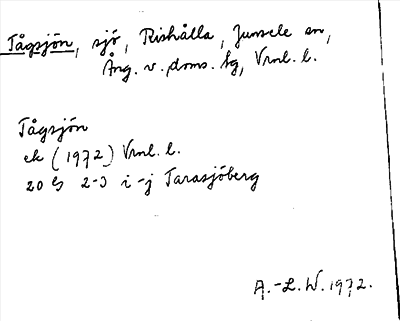 Tågsjön, sjö, Rishålla, Junsele sn,
Ång. v. doms. hg, Vrnl. l.
Tågsjön
ek (1972) Vrnl. l.
20 G 2-3 i-j Tarasjöberg
A.-L. W. 1972.